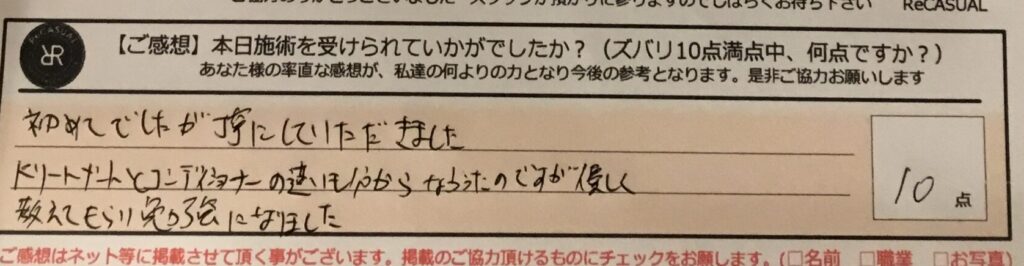 ご協力ありがとうございました　スタッフが預かりに参りますのでしばらくお待ち下さい　ReCASUAL
ReCASUAL
【ご感想】本日施術を受けられていかがでしたか？（ズバリ10点満点中、何点ですか？）
あなた様の率直な感想が、私達の何よりの力となり今後の参考となります。是非ご協力お願いします
初めてでしたが丁寧にしていただきました
トリートメントとコンディショナーの違いも分からなかったのですが優しく
教えてもらい勉強になりました
10点
ご感想はネット等に掲載させて頂く事がございます。掲載のご協力頂けるものにチェックをお願します。（□名前　□職業　□お写真）